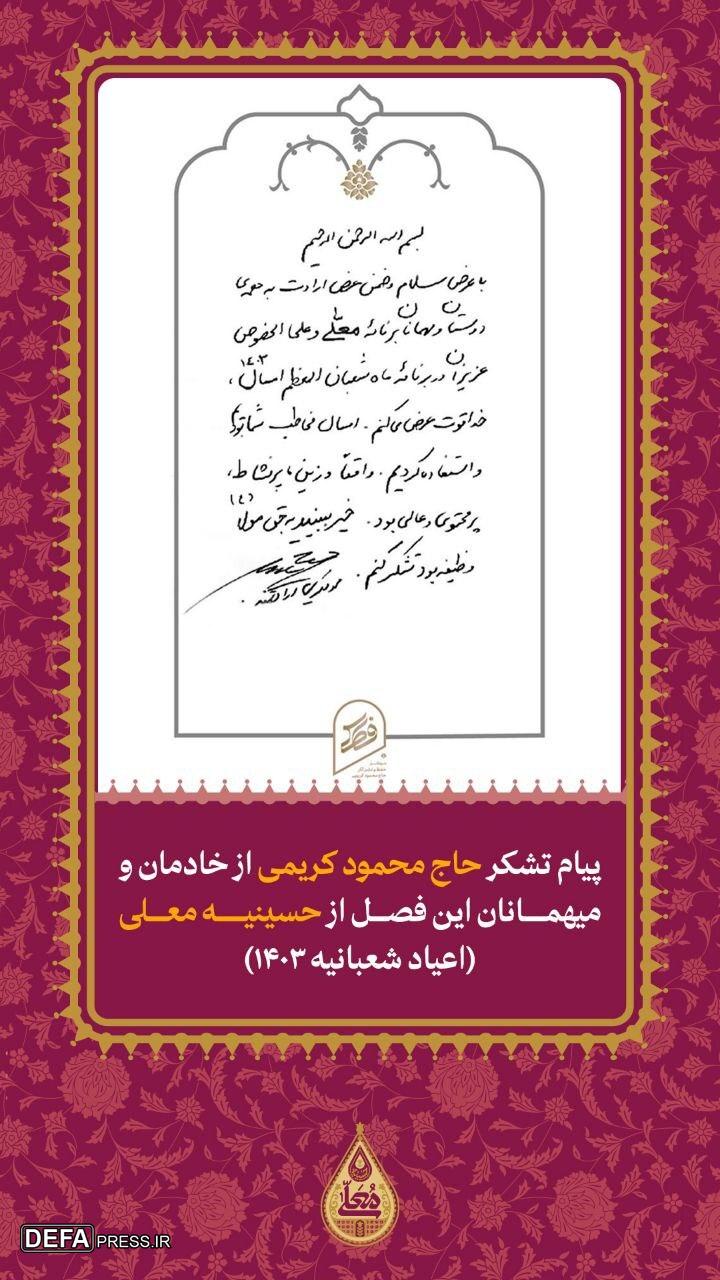 بسم الله الرحمن الرحیم
با عرض سلام و ضمن عرض ارادت به همه‌ی
دوستان و مهمانان برنامه معلّی و علی الخصوص
عزیزان در برنامه ماه شعبان المعظم امسال ۱۴۰۳،
خدا قوت عرض می‌کنم. امسال مخاطب شما بودم
و استفاده کردیم. واقعاً وزین، پرنشاط،
پرمحتوی و عالی بود. خیر ببینید به حق مولا (ع)
وظیفه بود تشکر کنم.
فصل
حفظ و نشر آثار
حاج محمود کریمی
پیام تشکر حاج محمود کریمی از خادمان و
میهمانان این فصل از حسینیه معلی
(اعیاد شعبانیه ۱۴۰۳)
مُعلّی
DEFAPRESS.IR